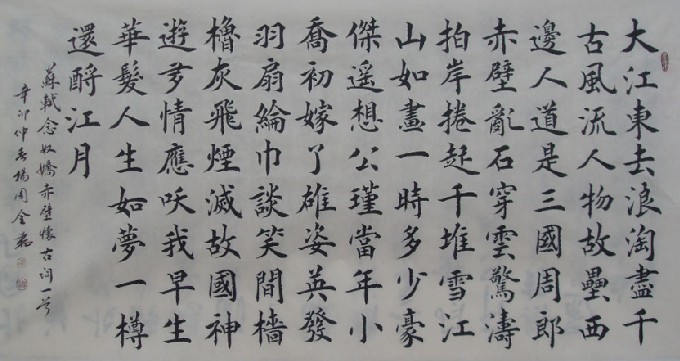 大江東去浪淘盡千
古風流人物故壘西
邊人道是三國周郎
赤壁亂石穿雲驚濤
拍岸捲起千堆雪江
山如畫一時多少豪
傑遥想公瑾當年小
喬初嫁了雄姿英發
羽扇綸巾談笑間檣
櫓灰飛煙滅故國神
遊多情應咲我早生
華髮人生如夢一樽
還酹江月
蘇軾念奴嬌赤壁懷古詞一首
辛卯仲春楊周金